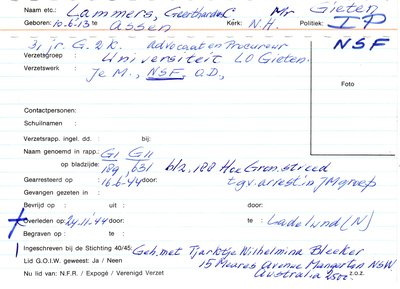 Naam etc.: Lammers, Geerthardus C Mr Gieten
Geboren: 10-6-13 te Assen Kerk: N.H. Politiek: ID
31 jr. G. 2 K. advocaat en Procureur NSF
Verzetsgroep : Universiteit LO Gieten.
Verzetswerk : Je M., NSF, O.D.,
Foto
Contactpersonen:
Schuilnamen :
Verzetsrapp. ingel. dd. : bij:
Naam genoemd in rapp.: GI GII
op bladzijde: 189, 631 blz. 188 Het Gron. streed
Gearresteerd op : 16-6-44 door: t.g.v. arrest in JM groep
Gevangen gezeten in :
Bevrijd op : uit : door: te :
Overleden op : 24-11-'44 door: te : Ladelund (N)
Begraven op : te :
Ingeschreven bij de Stichting 40/45: Geh. met Tjarktje Wilhelmina Bleeker
Lid G.O.I.W. geweest: Ja / Neen 15 Meares Avenue Mangerton NSW
Nu lid van: N.F.R. / Expogé / Verenigd Verzet Australia 2500. z.o.z.